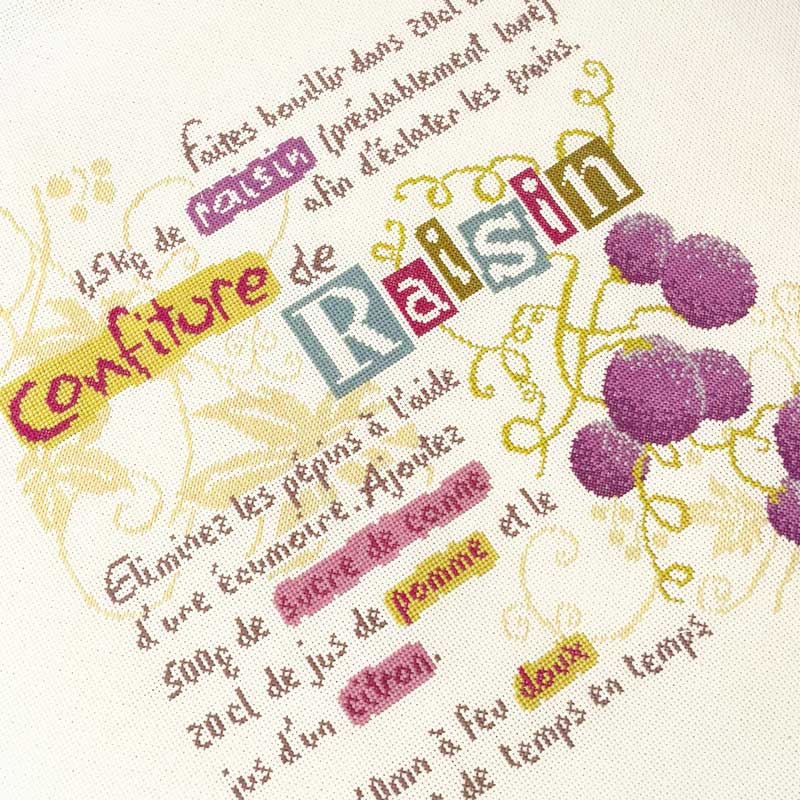 Faites bouillir dans 20cl
1,5kg de raisin (préalablement lavé)
afin d'éclater les grains.
Confiture de Raisin
Eliminez les pépins à l'aide
d'une écumoire. Ajoutez
500g de sucre de canne
20cl de jus de pomme et le
jus d'un citron.
10mn à feu doux
de temps en temps